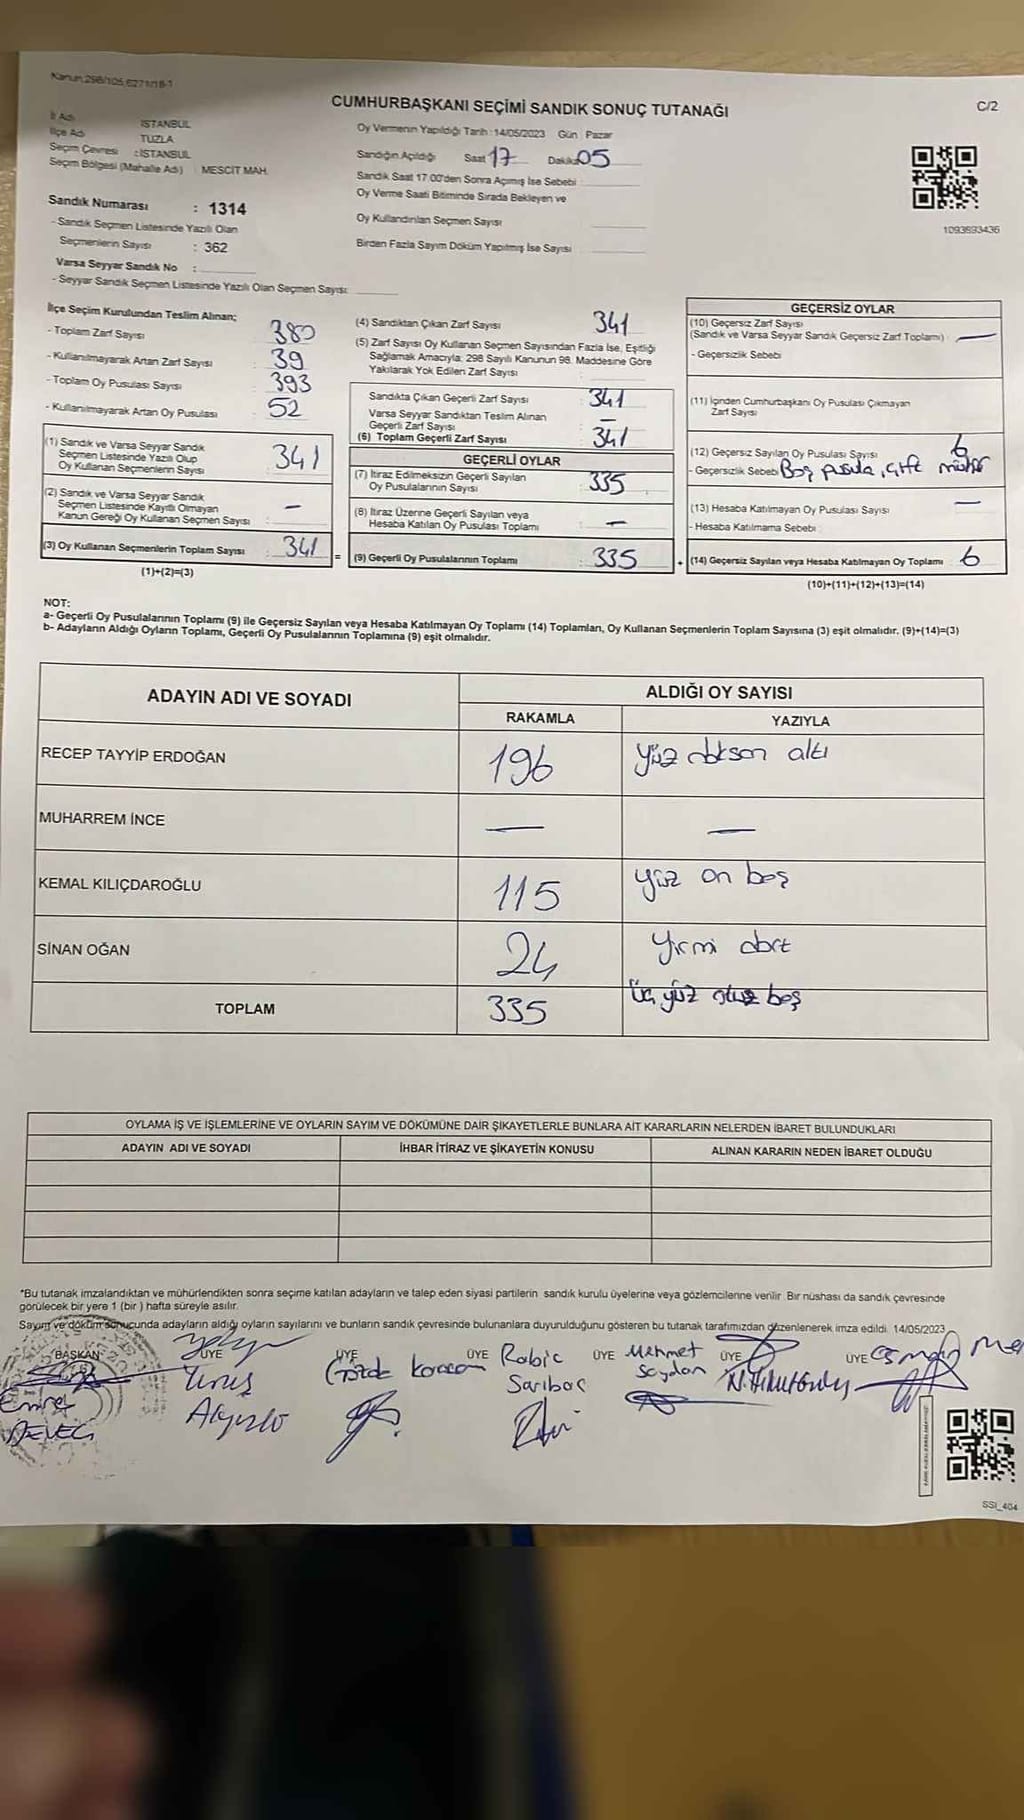 Kanun,298/105,6271/18-1
CUMHURBAŞKANI SEÇİMİ SANDIK SONUÇ TUTANAĞI
C/2
İl Adı İSTANBUL
İlçe Adı TUZLA
Seçim Çevresi : İSTANBUL
Seçim Bölgesi (Mahalle Adı) : MESCİT MAH.
Sandık Numarası : 1314
- Sandık Seçmen Listesinde Yazılı Olan
Seçmenlerin Sayısı : 362
Varsa Seyyar Sandık No :
- Seyyar Sandık Seçmen Listesinde Yazılı Olan Seçmen Sayısı:
Oy Vermenin Yapıldığı Tarih : 14/05/2023 Gün Pazar
Sandığın Açıldığı Saat 17 Dakika 05
Sandık Saat 17:00'den Sonra Açımış İse Sebebi :
Oy Verme Saati Bitiminde Sırada Bekleyen ve
Oy Kullandırılan Seçmen Sayısı
Birden Fazla Sayım Döküm Yapılmış İse Sayısı
1093693436
İlçe Seçim Kurulundan Teslim Alınan;
- Toplam Zarf Sayısı 380
- Kullanılmayarak Artan Zarf Sayısı : 39
- Toplam Oy Pusulası Sayısı : 393
- Kullanılmayarak Artan Oy Pusulası : 52
(1) Sandık ve Varsa Seyyar Sandık
Seçmen Listesinde Yazılı Olup
Oy Kullanan Seçmenlerin Sayısı 341
(2) Sandık ve Varsa Seyyar Sandık
Seçmen Listesinde Kayıtlı Olmayan
Kanun Gereği Oy Kullanan Seçmen Sayısı : —
(3) Oy Kullanan Seçmenlerin Toplam Sayısı : 341 =
(1)+(2)=(3)
(4) Sandıktan Çıkan Zarf Sayısı 341
(5) Zarf Sayısı Oy Kullanan Seçmen Sayısından Fazla İse, Eşitliği
Sağlamak Amacıyla; 298 Sayılı Kanunun 98. Maddesine Göre
Yakılarak Yok Edilen Zarf Sayısı :
Sandıkta Çıkan Geçerli Zarf Sayısı : 341
Varsa Seyyar Sandıktan Teslim Alınan
Geçerli Zarf Sayısı : —
(6) Toplam Geçerli Zarf Sayısı : 341
GEÇERLİ OYLAR
(7) İtiraz Edilmeksizin Geçerli Sayılan
Oy Pusulalarının Sayısı : 335
(8) İtiraz Üzerine Geçerli Sayılan veya
Hesaba Katılan Oy Pusulası Toplamı : —
(9) Geçerli Oy Pusulalarının Toplamı : 335 +
GEÇERSİZ OYLAR
(10) Geçersiz Zarf Sayısı
(Sandık ve Varsa Seyyar Sandık Geçersiz Zarf Toplamı) : —
- Geçersizlik Sebebi
(11) İçinden Cumhurbaşkanı Oy Pusulası Çıkmayan
Zarf Sayısı
(12) Geçersiz Sayılan Oy Pusulası Sayısı : 6
- Geçersizlik Sebebi Boş pusula, çift mühür
(13) Hesaba Katılmayan Oy Pusulası Sayısı : —
- Hesaba Katılmama Sebebi :
(14) Geçersiz Sayılan veya Hesaba Katılmayan Oy Toplamı : 6
(10)+(11)+(12)+(13)=(14)
NOT:
a- Geçerli Oy Pusulalarının Toplamı (9) ile Geçersiz Sayılan veya Hesaba Katılmayan Oy Toplamı (14) Toplamları, Oy Kullanan Seçmenlerin Toplam Sayısına (3) eşit olmalıdır. (9)+(14)=(3)
b- Adayların Aldığı Oyların Toplamı, Geçerli Oy Pusulalarının Toplamına (9) eşit olmalıdır.
ADAYIN ADI VE SOYADI ALDIĞI OY SAYISI
RAKAMLA YAZIYLA
RECEP TAYYİP ERDOĞAN 196 yüz doksan altı
MUHARREM İNCE — —
KEMAL KILIÇDAROĞLU 115 yüz on beş
SİNAN OĞAN 24 yirmi dört
TOPLAM 335 üç yüz otuz beş
OYLAMA İŞ VE İŞLEMLERİNE VE OYLARIN SAYIM VE DÖKÜMÜNE DAİR ŞİKAYETLERLE BUNLARA AİT KARARLARIN NELERDEN İBARET BULUNDUKLARI
ADAYIN ADI VE SOYADI İHBAR İTİRAZ VE ŞİKAYETİN KONUSU ALINAN KARARIN NEDEN İBARET OLDUĞU
*Bu tutanak imzalandıktan ve mühürlendikten sonra seçime katılan adayların ve talep eden siyasi partilerin sandık kurulu üyelerine veya gözlemcilerine verilir. Bir nüshası da sandık çevresinde
görülecek bir yere 1 (bir ) hafta süreyle asılır.
Sayım ve döküm sonucunda adayların aldığı oyların sayılarını ve bunların sandık çevresinde bulunanlara duyurulduğunu gösteren bu tutanak tarafımızdan düzenlenerek imza edildi. 14/05/2023
BAŞKAN ÜYE ÜYE ÜYE ÜYE ÜYE ÜYE
Gözde Rabia Mehmet
Saribaş Saydan
SSI_404